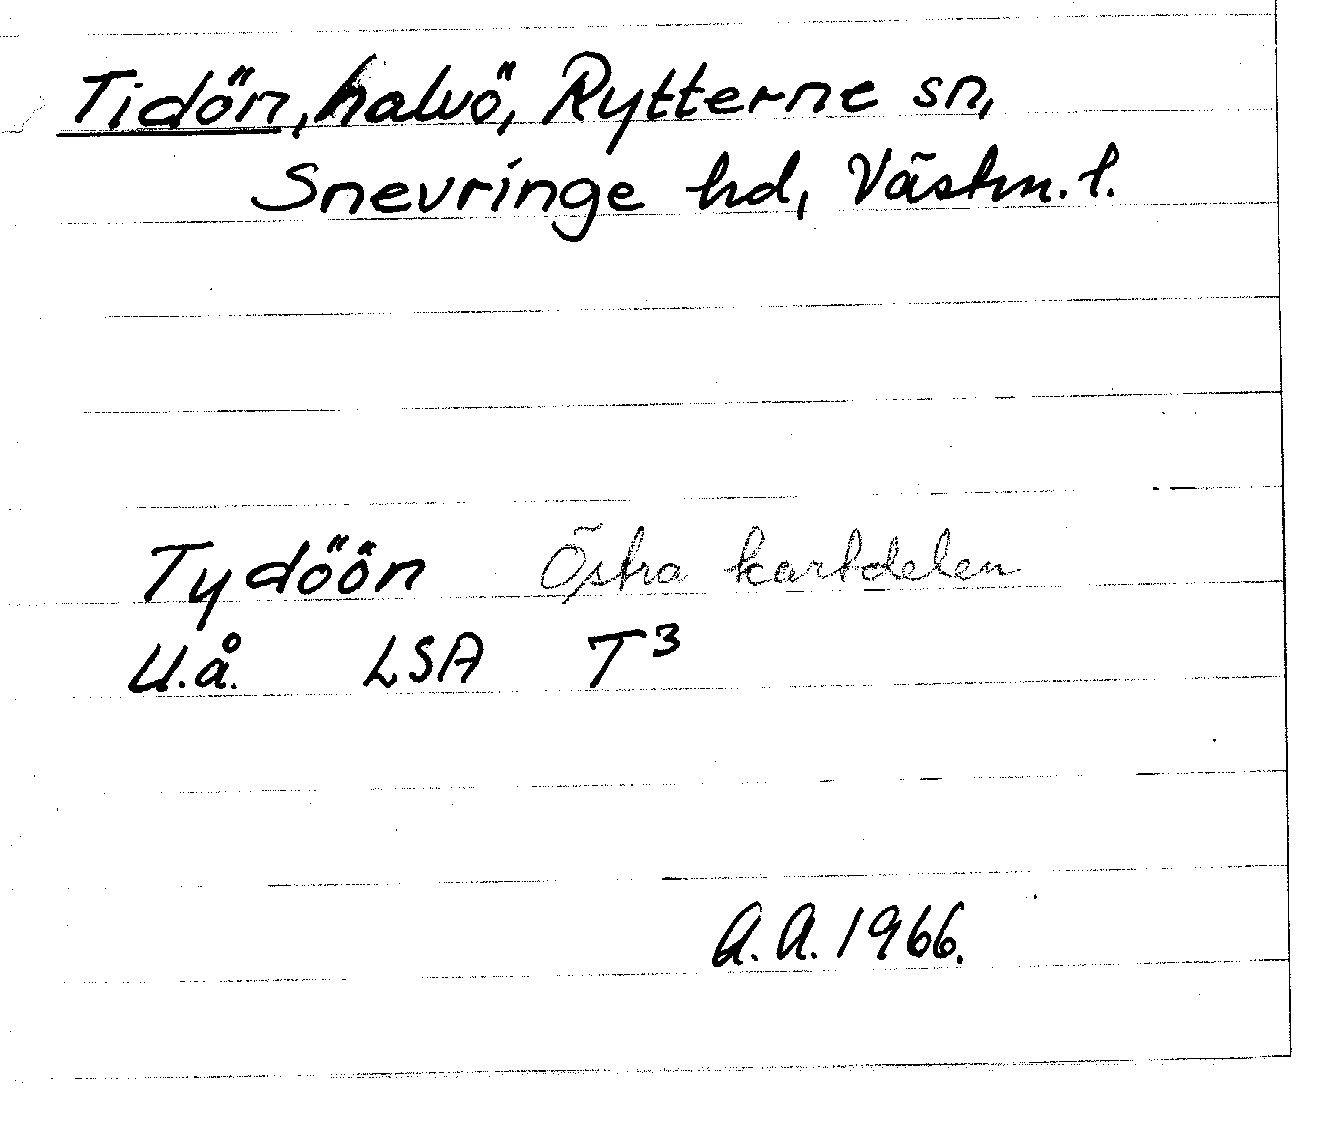 Tidön, halvö, Rytterne sn,
Snevringe hd, Västm. l.
Tydöön Östra kartdelen
U.å. LSA T³
A.A. 1966.